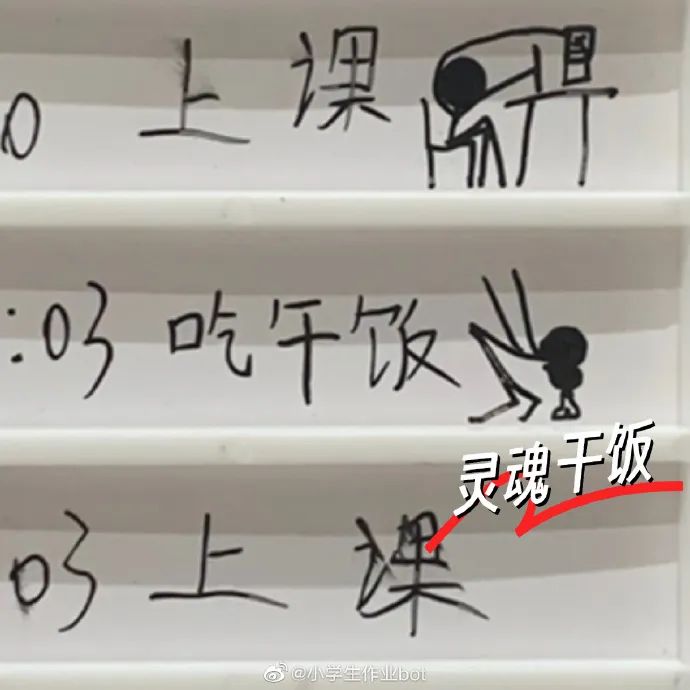 0 上课
:03 吃午饭
灵魂干饭
03 上课
@小学生作业bot